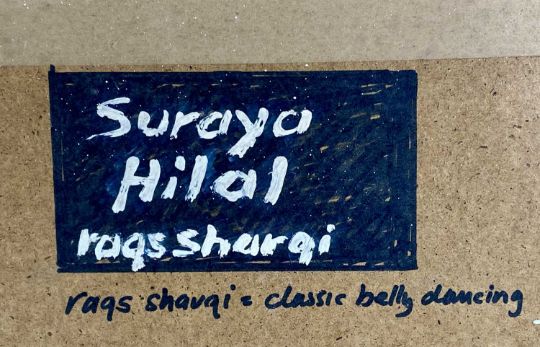 Suraya
Hilal
raqs sharqi
raqs sharqi = classic belly dancing